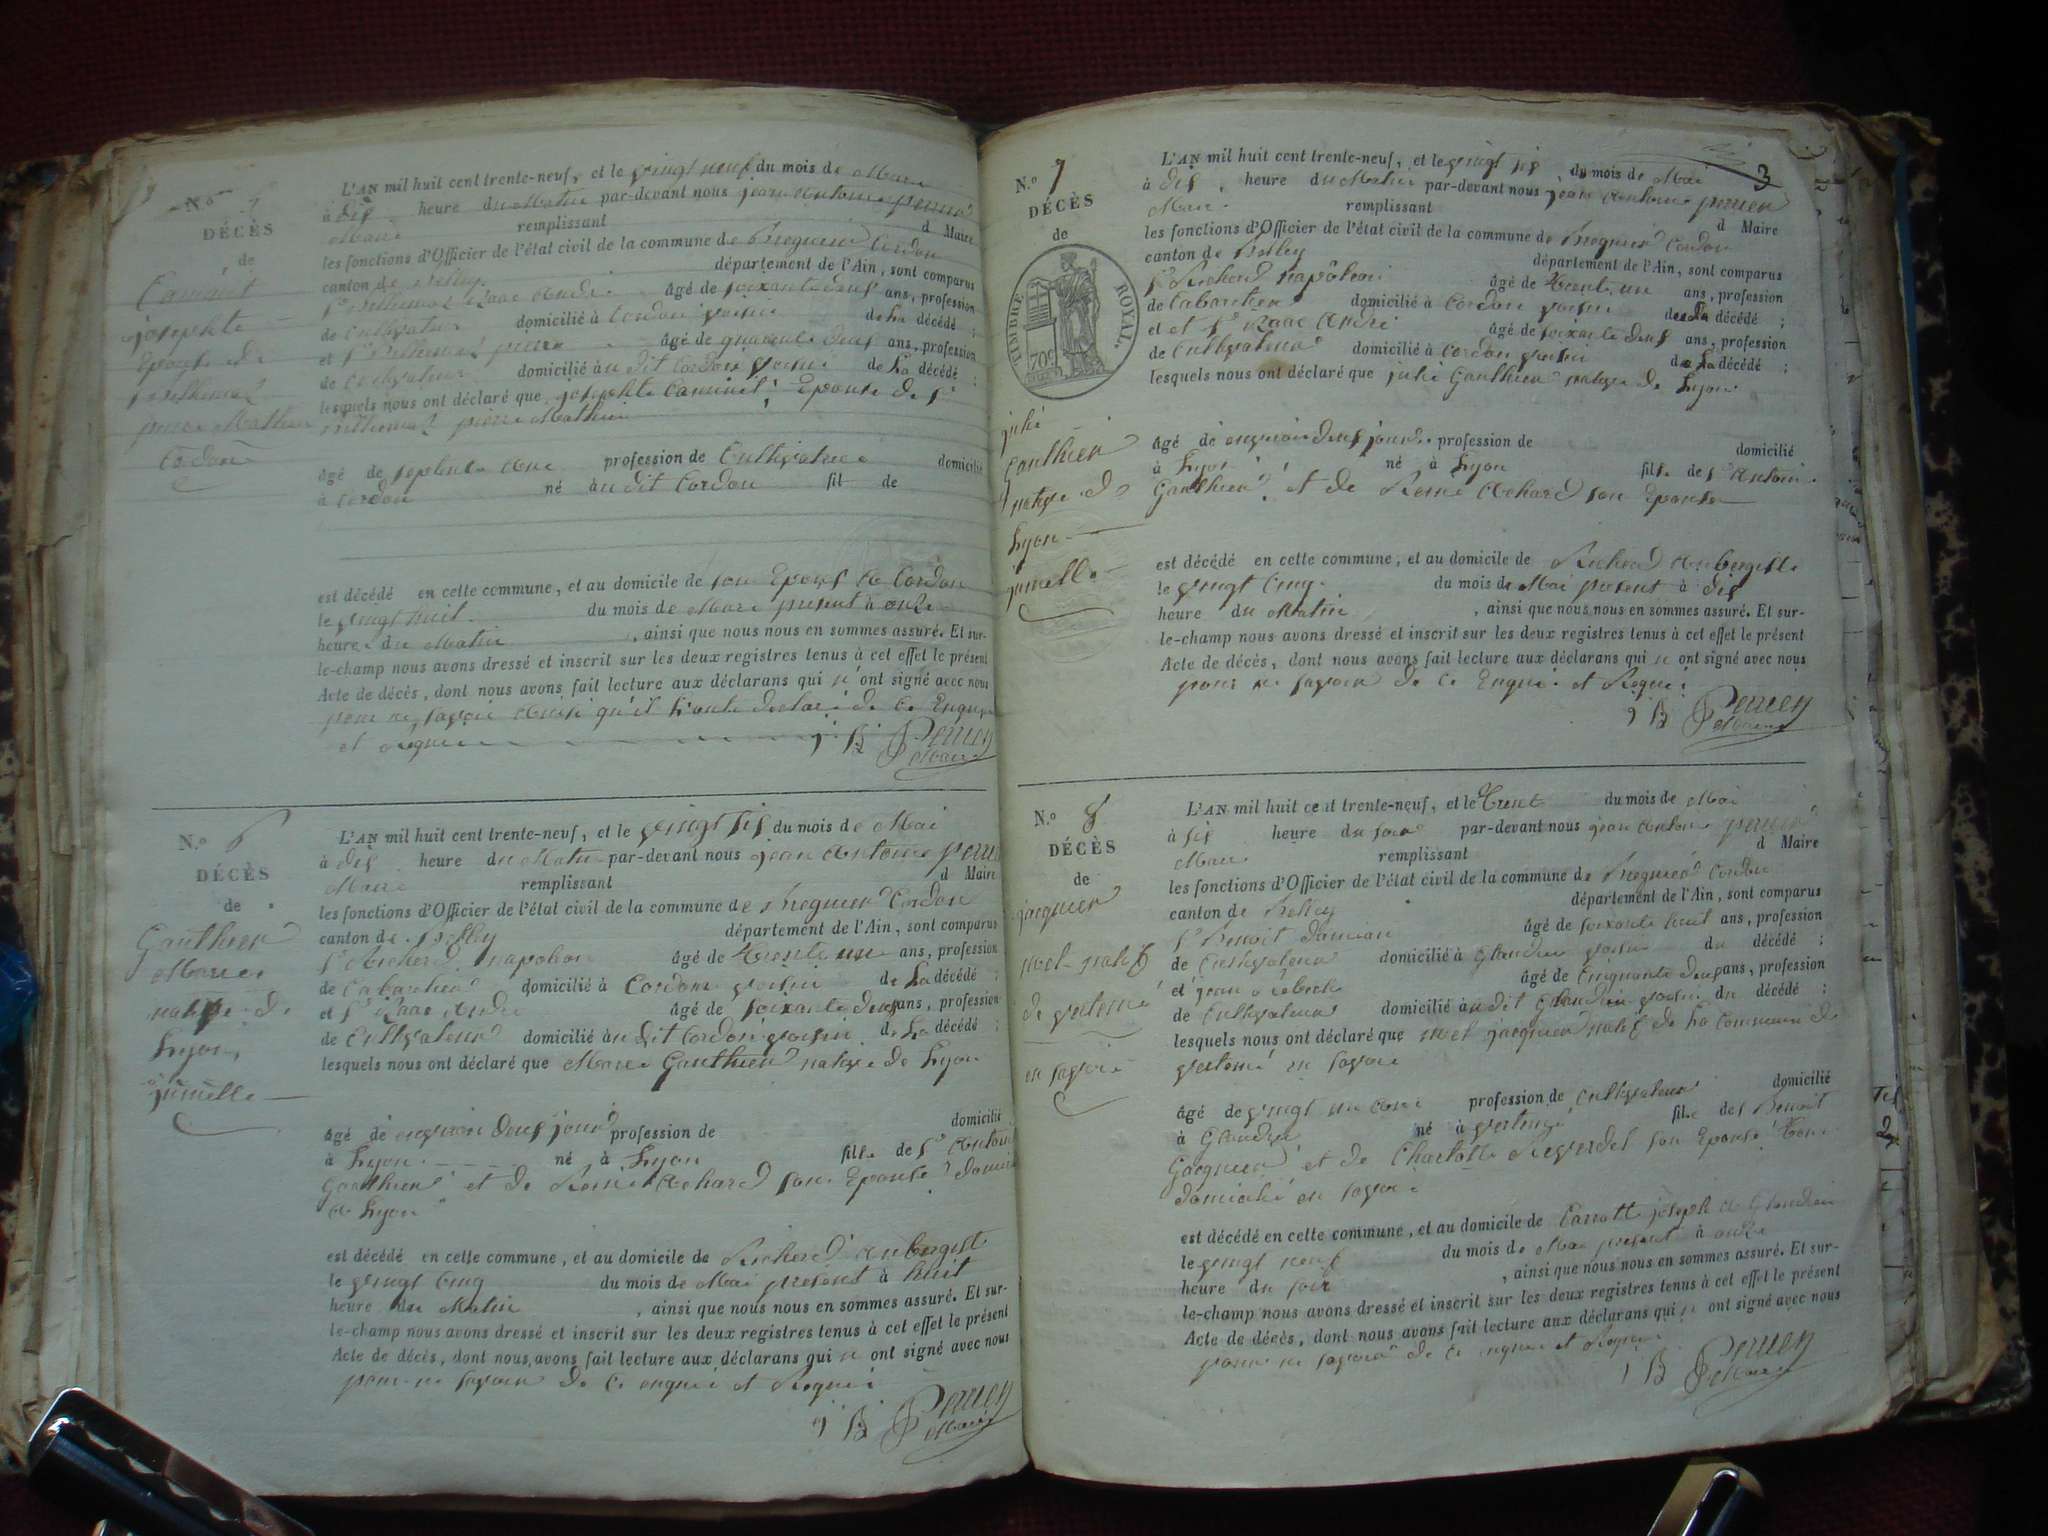 N.º 5
DÉCÈS
de
Caminet
josephte
Epouse de
pierre Mathieu
Cordon
L'AN mil huit cent trente-neuf, et le vingt neuf du mois de Mars
à dix heure du Matin par-devant nous jean Antoine
Maire remplissant d Maire
les fonctions d'Officier de l'état civil de la commune de Bregnier Cordon
canton de Belley département de l'Ain, sont comparus
Sr Isaac André âgé de soixante deux ans, profession
de Cultivateur domicilié à Cordon voisin de la décédé ;
et Sr pierre âgé de quarante deux ans, profession
de Cultivateur domicilié à u dit Cordon voisin de La décédé ;
lesquels nous ont déclaré que josephte Caminet Epouse de Sr
pierre Mathieu
âgé de septente ans profession de Cultivatrice domicilié
à Cordon né à u dit Cordon fil de
est décédé en cette commune, et au domicile de son Epoux à Cordon
le vingt huit du mois de Mars présent à onze
heure du Matin, ainsi que nous nous en sommes assuré. Et sur-
le-champ nous avons dressé et inscrit sur les deux registres tenus à cet effet le présent
Acte de décès, dont nous avons fait lecture aux déclarans qui n' ont signé avec nous
pour ne savoir ainsi qu'il l'ont declaré de ce Enquis
et Requis
Maire
N.º 6
DÉCÈS
de
Gauthier
Marie
native de
Lyon,
jumelle
L'AN mil huit cent trente-neuf, et le vingt six du mois de Mai
à dix heure du Matin par-devant nous jean Antoine
Maire remplissant d Maire
les fonctions d'Officier de l'état civil de la commune de Bregnier Cordon
canton de Belley département de l'Ain, sont comparus
Sr Richerd napoléon âgé de trente un ans, profession
de Cabaretier domicilié à Cordon voisin de La décédé ;
et Sr Isaac André âgé de soixante deux ans, profession
de Cultivateur domicilié à u dit Cordon voisin de La décédé ;
lesquels nous ont déclaré que Marie Gauthier native de Lyon
âgé de environ deux jours profession de domicilié
à Lyon né à Lyon fille de Sr Antoine
Gauthier et de Reine Achard son Epouse
à Lyon
est décédé en cette commune, et au domicile de Richerd Aubergiste
le vingt Cinq du mois de Mai présent à huit
heure du Matin, ainsi que nous nous en sommes assuré. Et sur-
le-champ nous avons dressé et inscrit sur les deux registres tenus à cet effet le présent
Acte de décès, dont nous avons fait lecture aux déclarans qui n ont signé avec nous
pour ne savoir de ce enquis et Requis
Maire
3
N.º 7
DÉCÈS
de
TIMBRE ROYAL.
70c
julie
Gauthier
native de
Lyon
jumelle
L'AN mil huit cent trente-neuf, et le vingt six du mois de Mai
à dix heure du Matin par-devant nous jean Antoine
Maire remplissant d Maire
les fonctions d'Officier de l'état civil de la commune de Bregnier Cordon
canton de Belley département de l'Ain, sont comparus
Sr Richerd napôléon âgé de trente un ans, profession
de Cabaretier domicilié à Cordon voisin de La décédé ;
et et Sr Isaac André âgé de soixante deux ans, profession
de Cultivateur domicilié à Cordon voisin de La décédé ;
lesquels nous ont déclaré que julie Gauthier native de Lyon
âgé de environ deux jours profession de domicilié
à Lyon né à Lyon fille de Sr Antoine
Gauthier et de Reine Achard son Epouse
est décédé en cette commune, et au domicile de Richerd Aubergiste
le vingt Cinq du mois de Mai présent à dix
heure du Matin, ainsi que nous nous en sommes assuré. Et sur-
le-champ nous avons dressé et inscrit sur les deux registres tenus à cet effet le présent
Acte de décès, dont nous avons fait lecture aux déclarans qui n ont signé avec nous
pour ne savoir de ce Enquis et Requis
Maire
N.º 8
DÉCÈS
de
jacquier
noel natif
de
en savoie
L'AN mil huit cent trente-neuf, et le trente du mois de Mai
à six heure du soir par-devant nous jean Antoine
Maire remplissant d Maire
les fonctions d'Officier de l'état civil de la commune de Bregnier Cordon
canton de Belley département de l'Ain, sont comparus
Sr Benoit Damian âgé de soixante huit ans, profession
de Cultivateur domicilié à Glandieu voisin du décédé ;
et jean âgé de Cinquante deux ans, profession
de Cultivateur domicilié à u dit Glandieu voisin du décédé ;
lesquels nous ont déclaré que noel jacquier natif de La Commune de
en savoie
âgé de vingt un ans profession de cultivateur domicilié
à Glandieu né à fils de Benoit
Gacquier et de Charlotte son Epouse
domicilié en savoie
est décédé en cette commune, et au domicile de joseph à Glandieu
le vingt neuf du mois de Mai présent à onze
heure du soir, ainsi que nous nous en sommes assuré. Et sur-
le-champ nous avons dressé et inscrit sur les deux registres tenus à cet effet le présent
Acte de décès, dont nous avons fait lecture aux déclarans qui n ont signé avec nous
pour ne savoir de ce enquis et Requis
Maire